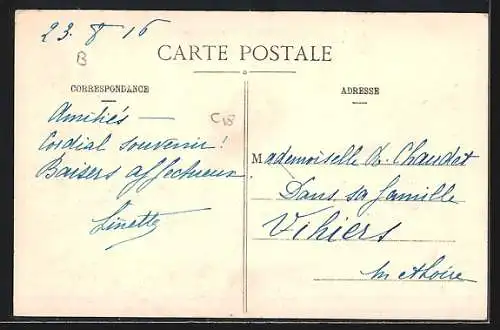 23. 8 16
B
CARTE POSTALE
CORRESPONDANCE
ADRESSE
Amitiés —
C18
Cordial souvenir !
Baisers affectueux
Linette
Mademoiselle R. Chaudet
Dans sa famille
Vihiers
M et Loire